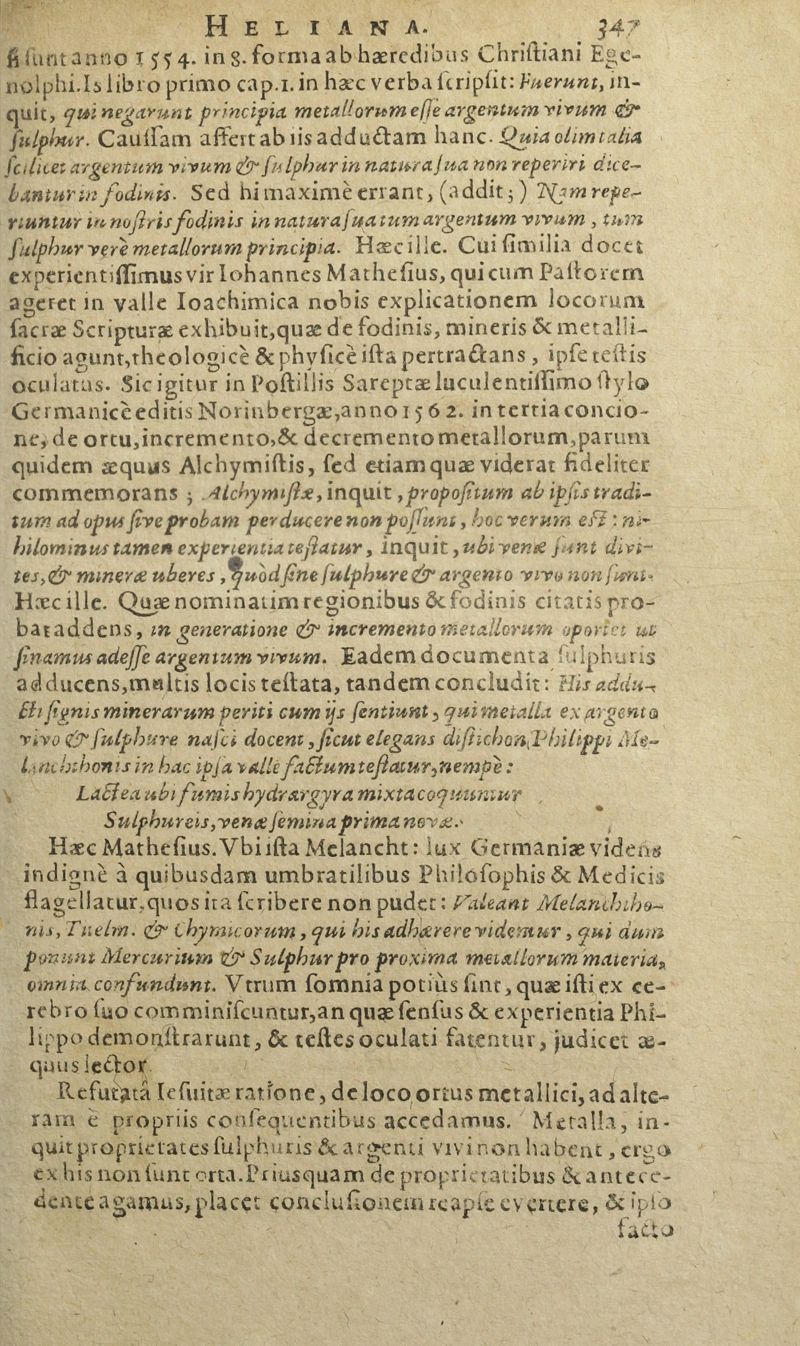 HELIANA. 347
ſi ſunt anno 1554. in 8. forma ab hæredibus Chriſtiani Ege-
nolphi. Is libro primo cap.1. in hæc verba ſcripſit: Fuerunt, in-
quit, qui negarunt principia metallorum eſſe argentum vivum &
ſulphur. Cauſſam affert ab iis adductam hanc. Quia olim talia
ſcilicet argentum vivum & ſulphur in natura ſua non reperiri dice-
bantur in fodinis. Sed hi maximè errant, (addit;) Nam repe-
riuntur in noſtris fodinis in natura ſua tum argentum vivum, tum
ſulphur verè metallorum principia. Hæc ille. Cui ſimilia docet
experientiſſimus vir Iohannes Mathefius, qui cum Paſtorem
ageret in valle Ioachimica nobis explicationem locorum
ſacræ Scripturæ exhibuit, quæ de fodinis, mineris & metalli-
ficio agunt, theologicè & phyſicè iſta pertractans, ipſe teſtis
oculatus. Sic igitur in Poſtillis Sareptæ luculentiſſimo ſtylo
Germanicè editis Norinbergæ, anno 1562. in tertia concio-
ne, de ortu, incremento, & decremento metallorum, parum
quidem æquus Alchymiſtis, ſed etiam quæ viderat fideliter
commemorans; Alchymiſtæ, inquit, propoſitum ab ipſis tradi-
tum ad opus ſive probam perducere non poſſunt, hoc verum eſt: ni-
hilominus tamen experientia teſtatur, inquit, ubi venæ ſunt divi-
tes, & mineræ uberes, quòd ſine ſulphure & argento vivo non ſunt.
Hæc ille. Quæ nominatim regionibus & fodinis citatis pro-
bat addens, in generatione & incremento metallorum oportet ut
ſinamus adeſſe argentum vivum. Eadem documenta ſulphuris
adducens, multis locis teſtata, tandem concludit: His addu-
cti ſignis minerarum periti cum iis ſentiunt, qui metalla ex argento
vivo & ſulphure naſci docent, ſicut elegans diſtichon Philippi Me-
lanchthonis in hac ipſa valle factum teſtatur, nempè:
Lactea ubi fumis hydrargyra mixta coquuntur
Sulphureis, venæ ſemina prima novæ.
Hæc Mathefius. Vbi iſta Melancht: lux Germaniæ videns
indignè à quibusdam umbratilibus Philoſophis & Medicis
flagellatur, quos ita ſcribere non pudet: Valeant Melanchtho-
nis, Tuelm. & Chymicorum, qui his adhærere videntur, qui dum
ponunt Mercurium & Sulphur pro proxima metallorum materia,
omnia confundunt. Vtrum ſomnia potiùs ſint, quæ iſti ex ce-
rebro ſuo comminiſcuntur, an quæ ſenſus & experientia Phi-
lippo demonſtrarunt, & teſtes oculati fatentur, judicet æ-
quus lector.
Refutatâ Ieſuitæ ratione, de loco ortus metallici, ad alte-
ram è propriis conſequentibus accedamus. Metalla, in-
quit proprietates ſulphuris & argenti vivi non habent, ergo
ex his non ſunt orta. Priusquam de proprietatibus & antece-
dente agamus, placet concluſionem reapſe evertere, & ipſo
facto